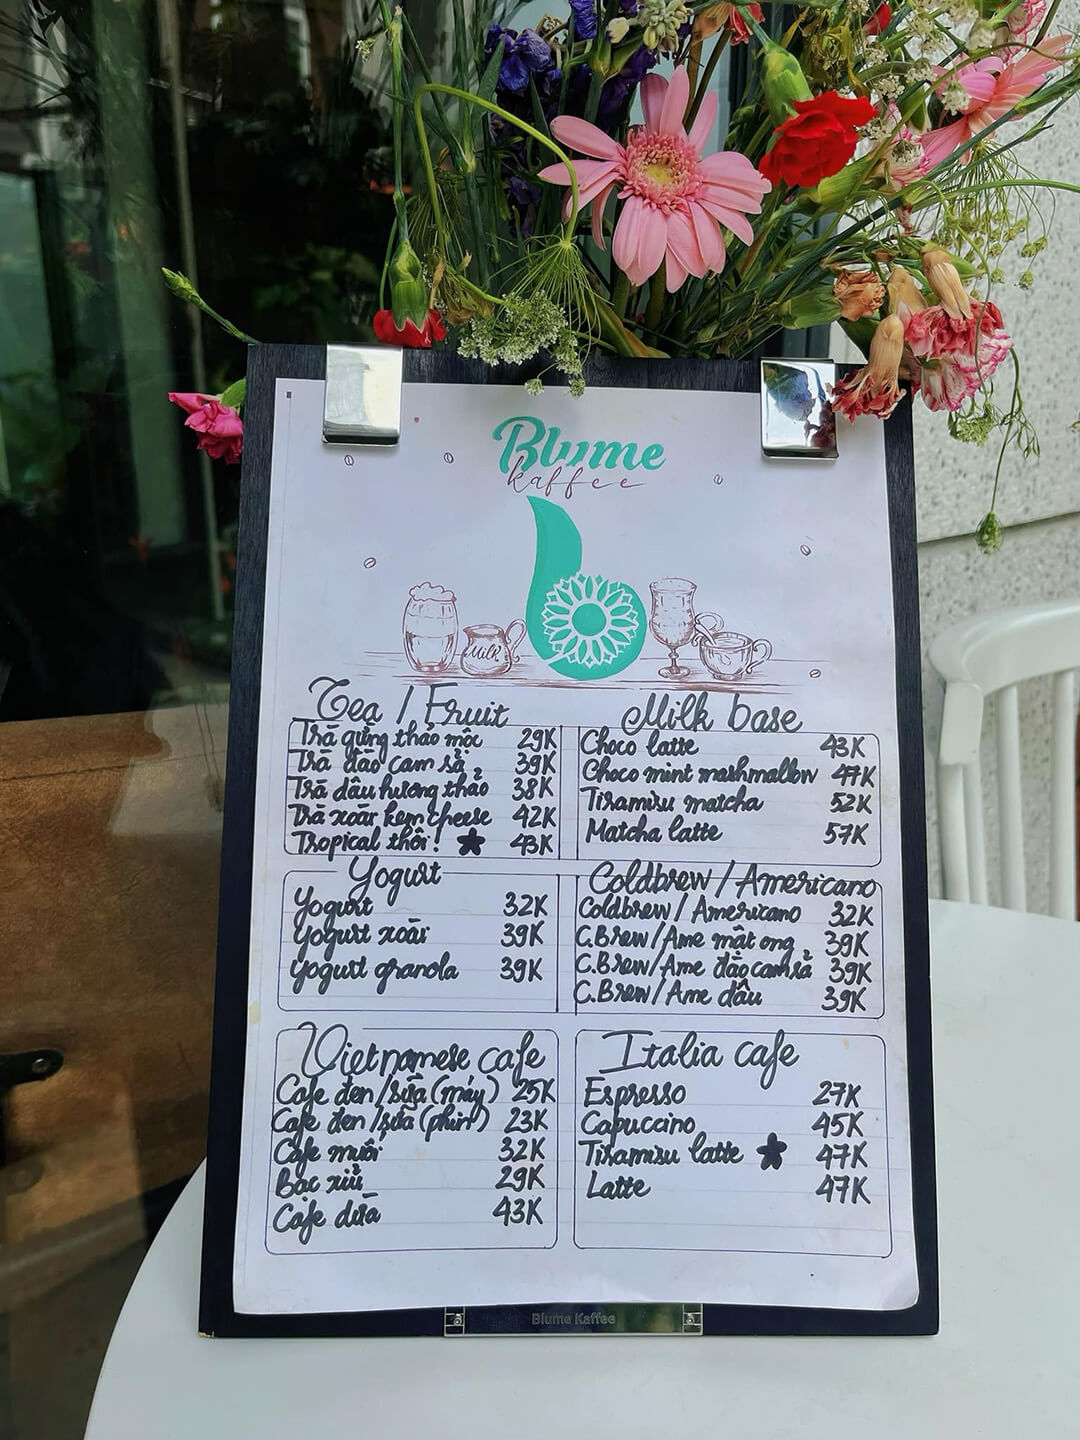 Blume
kaffee
Milk
Tea / Fruit
Trà gừng thảo mộc 29K
Trà đào cam sả 39K
Trà dâu hương thảo 38K
Trà xoài kem cheese 42K
Tropical thôi! 43K
Milk base
Choco latte 43K
Choco mint mashmallow 47K
Tiramisu matcha 52K
Matcha latte 57K
Yogurt
Yogurt 32K
Yogurt xoài 39K
Yogurt granola 39K
Coldbrew / Americano
Coldbrew / Americano 32K
C.Brew/Ame mật ong 39K
C.Brew/Ame đào cam sả 39K
C.Brew/Ame dâu 39K
Vietnamese cafe
Cafe đen/sữa (máy) 25K
Cafe đen/sữa (phin) 23K
Cafe muối 32K
Bạc xỉu 29K
Cafe dừa 43K
Italia cafe
Espresso 27K
Capuccino 45K
Tiramisu latte 47K
Latte 47K
Blume Kaffee